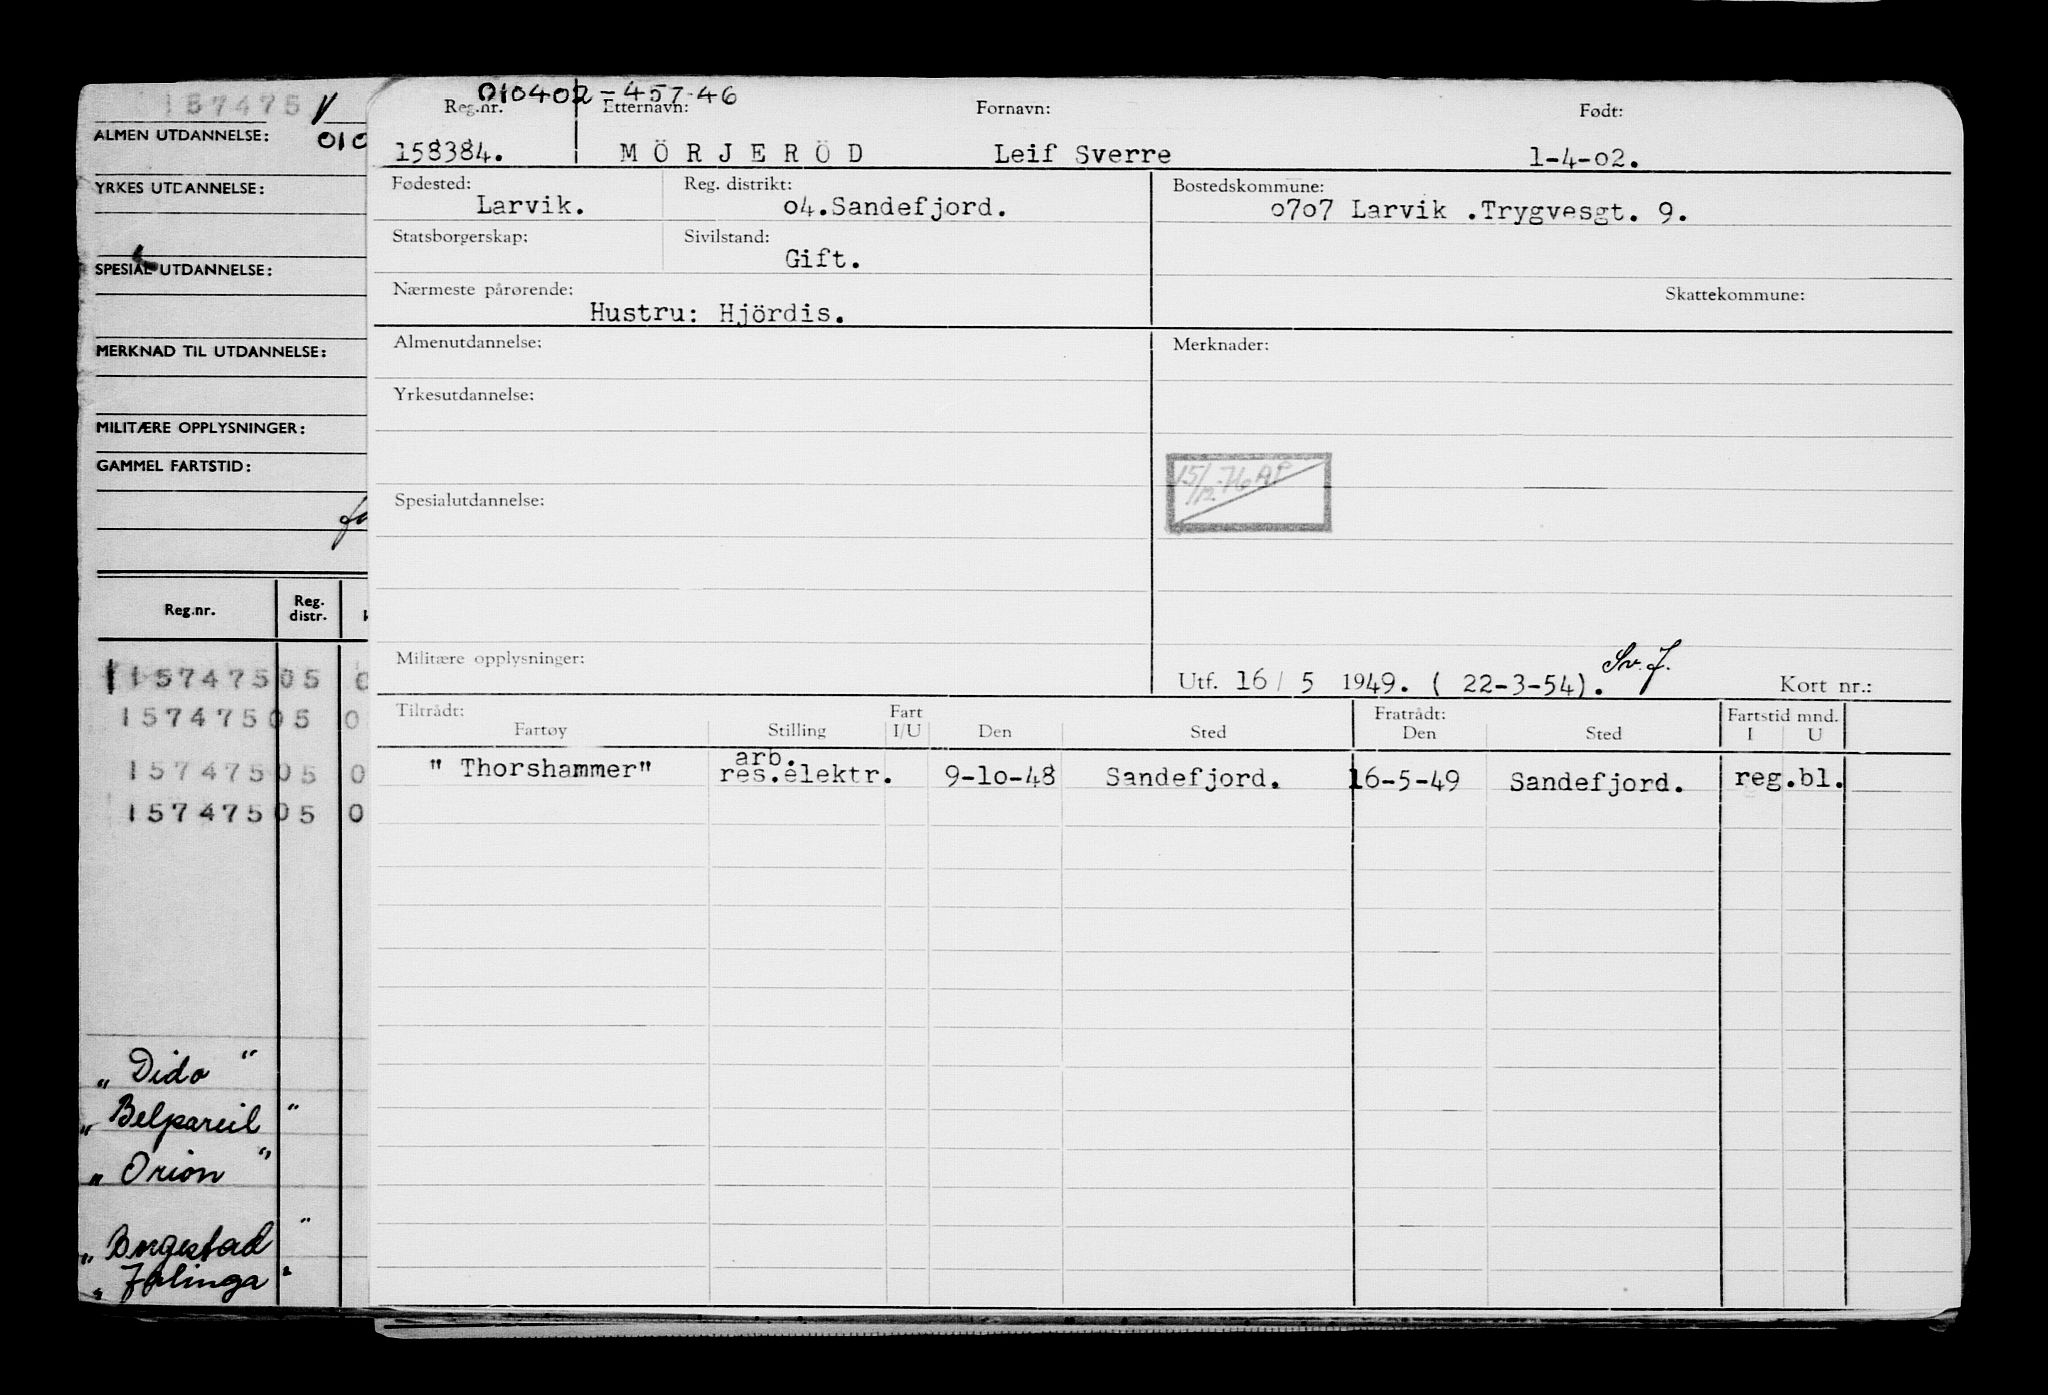 157475 V
ALMEN UTDANNELSE:
010
YRKES UTDANNELSE:
SPESIAL UTDANNELSE:
MERKNAD TIL UTDANNELSE:
MILITÆRE OPPLYSNINGER:
GAMMEL FARTSTID:
Reg.nr. Reg. distr.
157475 05 0
157475 05 0
157475 05 0
157475 05 0
„ Dido "
„ Belpareil "
„ Orion "
„ Borgestad "
„ Jalinga "
010402-457-46
Reg.nr. Etternavn: Fornavn: Født:
158384. MÖRJERÖD Leif Sverre 1-4-02.
Fødested: Reg. distrikt: Bostedskommune:
Larvik. o4.Sandefjord. 0707 Larvik .Trygvesgt. 9.
Statsborgerskap: Sivilstand:
Gift.
Nærmeste pårørende: Skattekommune:
Hustru: Hjördis.
Almenutdannelse: Merknader:
Yrkesutdannelse:
15/12-76 AP
Spesialutdannelse:
Militære opplysninger: Sv. J.
Utf. 16 / 5 1949. ( 22-3-54). Kort nr.:
Tiltrådt: Fart Fratrådt: Fartstid mnd.
Fartøy Stilling I/U Den Sted Den Sted I U
arb.
" Thorshammer" res.elektr. 9-10-48 Sandefjord. 16-5-49 Sandefjord. reg.bl.